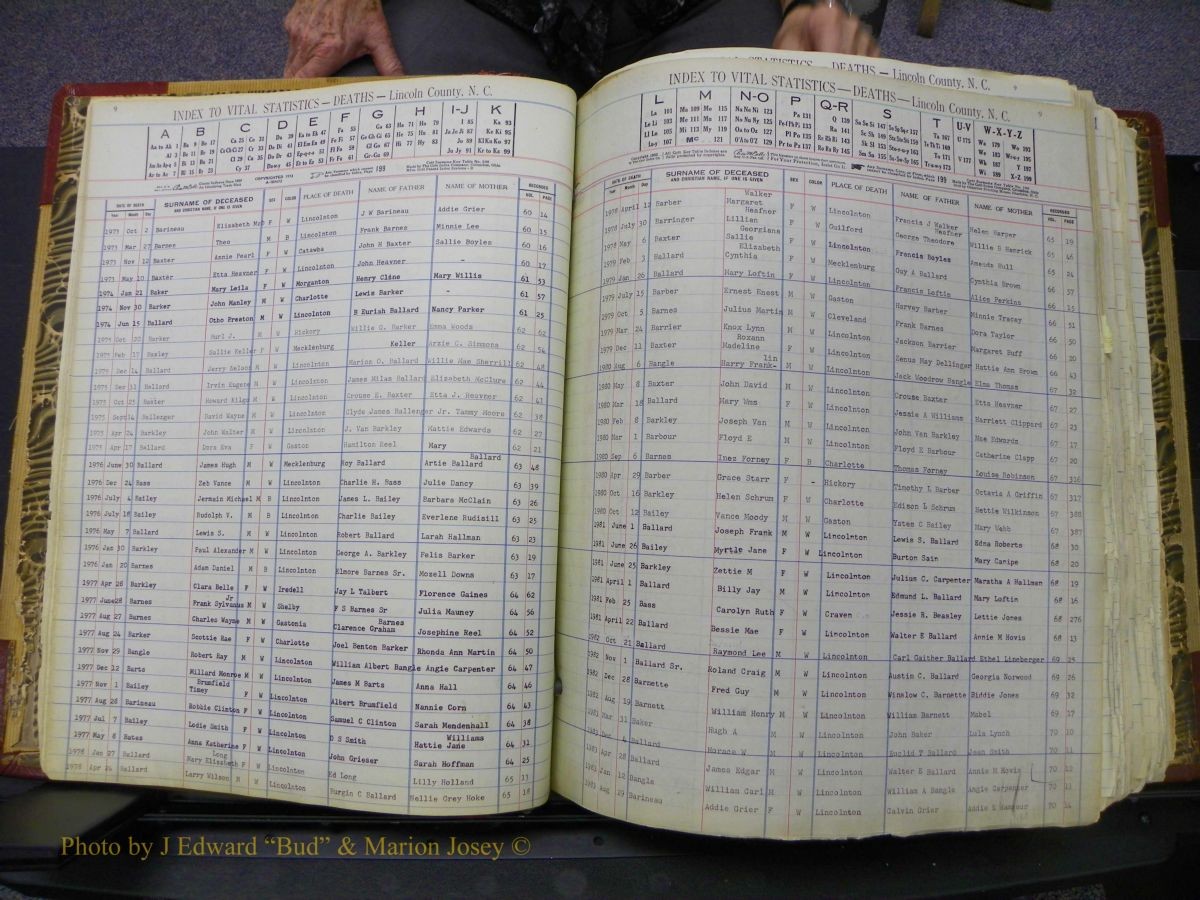 INDEX TO VITAL STATISTICS — DEATHS — Lincoln County, N. C.
A B C D E F G H I-J K
DATE OF DEATH SURNAME OF DECEASED AND CHRISTIAN NAME, IF ONE IS GIVEN SEX COLOR PLACE OF DEATH NAME OF FATHER NAME OF MOTHER RECORDED
Year Month Day VOL. PAGE
1973 Oct 2 Barineau Elizabeth F W Lincolnton J W Barineau Addie Grier 60 14
1973 Mar 27 Barnes Theo M B Lincolnton Frank Barnes Minnie Lee 60 15
1973 Nov 12 Baxter Annie Pearl F W Catawba John H Baxter Sallie Boyles 60 16
1973 May 10 Baxter Etta Heavner F W Lincolnton John Heavner - 60 17
1974 Jan 21 Baker Mary Leila F W Morganton Henry Cline Mary Willis 61 53
1974 Nov 30 Barker John Manley M W Charlotte Lewis Barker - 61 57
1974 Jun 15 Ballard Otho Preston M W Lincolnton B Eurish Ballard Nancy Parker 61 25
1975 Oct 20 Barker Burl J. M W Hickory Willie G. Barker Emma Woods 62 62
1975 Feb 17 Baxley Sallie Keller F W Mecklenburg Keller Arzie G. Simmons 62 54
1975 Dec 14 Ballard Jerry Nelson M W Lincolnton Marion O. Ballard Willie Mae Sherrill 62 48
1975 Dec 31 Ballard Irvin Eugene M W Lincolnton James Milam Ballard Elizabeth McClure 62 44
1975 Oct 25 Baxter Howard Kilgo M W Lincolnton Crouse E. Baxter Etta J. Heavner 62 41
1975 Sept 14 Ballenger David Wayne M W Lincolnton Clyde James Ballenger Jr. Tammy Moore 62 38
1975 Apr 24 Barkley John Walter M W Lincolnton J. Van Barkley Mattie Edwards 62 27
1975 Apr 17 Ballard Dora Eva F W Gaston Hamilton Reel Mary 62 21
1976 June 30 Ballard James Hugh M W Mecklenburg Roy Ballard Artie Ballard Ballard 63 48
1976 Dec 24 Bass Zeb Vance M W Lincolnton Charlie H. Bass Julie Dancy 63 39
1976 July 4 Bailey Jermain Michael M B Lincolnton James L. Bailey Barbara McClain 63 26
1976 July 18 Bailey Rudolph V. M B Lincolnton Charlie Bailey Everlene Rudisill 63 25
1976 May 7 Ballard Lewis S. M W Lincolnton Robert Ballard Larah Hallman 63 23
1976 Jan 30 Barkley Paul Alexander M W Lincolnton George A. Barkley Felis Barker 63 19
1976 Jan 20 Barnes Adam Daniel M B Lincolnton Elmore Barnes Sr. Mozell Downs 63 17
1977 Apr 26 Barkley Clara Belle F W Iredell Jay L Talbert Florence Gaines 64 62
1977 June 28 Barnes Frank Sylvanus Jr M W Shelby F S Barnes Sr Julia Mauney 64 56
1977 Aug 27 Barnes Charles Wayne M W Gastonia Clarence Graham Barnes Josephine Reel 64 52
1977 Aug 24 Barker Scottie Rae F W Charlotte Joel Benton Barker Rhonda Ann Martin 64 50
1977 Nov 29 Bangle Robert Ray M W Lincolnton William Albert Bangle Angie Carpenter 64 47
1977 Dec 12 Barts Millard Monroe M W Lincolnton James M Barts Anna Hall 64 46
1977 Nov 1 Bailey Brumfield Timey F W Lincolnton Albert Brumfield Nannie Corn 64 43
1977 Aug 28 Barineau Robbie Clinton F W Lincolnton Samuel C Clinton Sarah Mendenhall 64 38
1977 Jul 7 Bailey Lodie Smith F W Lincolnton D S Smith Hattie Jane Williams 64 31
1977 May 8 Bates Anna Katherine F W Lincolnton John Grieser Sarah Hoffman 64 25
1978 Jan 27 Ballard Mary Elizabeth Long F W Lincolnton Ed Long Lilly Holland 65 13
1978 Apr 24 Ballard Larry Wilson M W Lincolnton Burgin C Ballard Nellie Grey Hoke 65 18
INDEX TO VITAL STATISTICS — DEATHS — Lincoln County, N. C.
L M N-O P Q-R S T U-V W-X-Y-Z
DATE OF DEATH SURNAME OF DECEASED AND CHRISTIAN NAME, IF ONE IS GIVEN SEX COLOR PLACE OF DEATH NAME OF FATHER NAME OF MOTHER RECORDED
Year Month Day VOL. PAGE
1978 April 12 Barber Margaret Walker F W Lincolnton Francis J Walker Helen Harper 65 19
1978 July 30 Barringer Lillian Heafner F W Guilford George Theodore Heafner Willie B Hamrick 65 46
1978 May 6 Baxter Sallie Georgiana F W Lincolnton Francis Boyles Amanda Hull 65 24
1979 Feb 3 Ballard Cynthia Elizabeth F W Mecklenburg Guy A Ballard Cynthia Brown 66 57
1979 Jan 26 Ballard Mary Loftin F W Lincolnton Francis Loftin Alice Perkins 66 15
1979 July 15 Barber Ernest Enest M W Gaston Harvey Barber Minnie Tracey 66 51
1979 Oct 5 Barnes Julius Martin M W Cleveland Frank Barnes Dora Taylor 66 50
1979 Mar 24 Barrier Knox Lynn M W Lincolnton Jackson Barrier Margaret Huff 66 20
1979 Dec 11 Baxter Madeline Roxann F W Lincolnton Zenus May Dellinger Hattie Ann Brown 66 43
1980 Aug 6 Bangle Harry Franklin M W Lincolnton Jack Woodrow Bangle Elma Thomas 67 32
1980 May 8 Baxter John David M W Lincolnton Crouse Baxter Etta Heavner 67 27
1980 Mar 18 Ballard Mary Wms F W Lincolnton Jessie A Williams Harriett Clippard 67 23
1980 Feb 8 Barkley Joseph Van M W Lincolnton John Van Barkley Mae Edwards 67 17
1980 Mar 1 Barbour Floyd E M W Lincolnton Floyd E Barbour Catharine Clapp 67 20
1980 Sep 6 Barnes Inez Forney F B Charlotte Thomas Forney Louise Robinson 67 316
1980 Apr 29 Barber Grace Starr F - Hickory Timothy L Barber Octavia A Griffin 67 317
1980 Oct 16 Barkley Helen Schrum F W Charlotte Edison L Schrum Hettie Wilkinson 67 388
1980 Oct 12 Bailey Vance Moody M W Gaston Yates C Bailey Mary Webb 67 387
1981 June 1 Ballard Joseph Frank M W Lincolnton Lewis S. Ballard Edna Roberts 68 30
1981 June 26 Bailey Myrtle Jane F W Lincolnton Burton Sain Mary Canipe 68 20
1981 June 25 Barkley Zettie M F W Lincolnton Julius C. Carpenter Maratha A Hallman 68 19
1981 April 1 Ballard Billy Jay M W Lincolnton Edmund L. Ballard Mary Loftin 68 16
1981 Feb 25 Bass Carolyn Ruth F W Craven Jessie R. Beasley Lettie Jones 68 276
1981 April 22 Ballard Bessie Mae F W Lincolnton Walter E Ballard Annie M Hovis 68 13
1982 Oct 21 Ballard Raymond Lee M W Lincolnton Carl Gaither Ballard Ethel Lineberger 69 25
1982 Nov 1 Ballard Sr. Roland Craig M W Lincolnton Austin C. Ballard Georgia Norwood 69 26
1982 Dec 28 Barnette Fred Guy M W Lincolnton Winslow C. Barnette Biddie Jones 69 32
1982 Aug 19 Barnett William Henry M W Lincolnton William Barnett Mabel 69 17
1983 Mar 31 Baker Hugh A M W Lincolnton John Baker Lula Lynch 70 10
1983 Dec 4 Ballard Horace W M W Lincolnton Euclid T Ballard Jean Smith 70 11
1983 Apr 28 Ballard James Edgar M W Lincolnton Walter E Ballard Annie M Hovis 70 12
1983 Jan 12 Bangle William Carl M W Lincolnton William A Bangle Angie Carpenter 70 11
1983 Aug 29 Barineau Addie Grier F W Lincolnton Calvin Grier Addie 70 14
Photo by J Edward “Bud” & Marion Josey ©